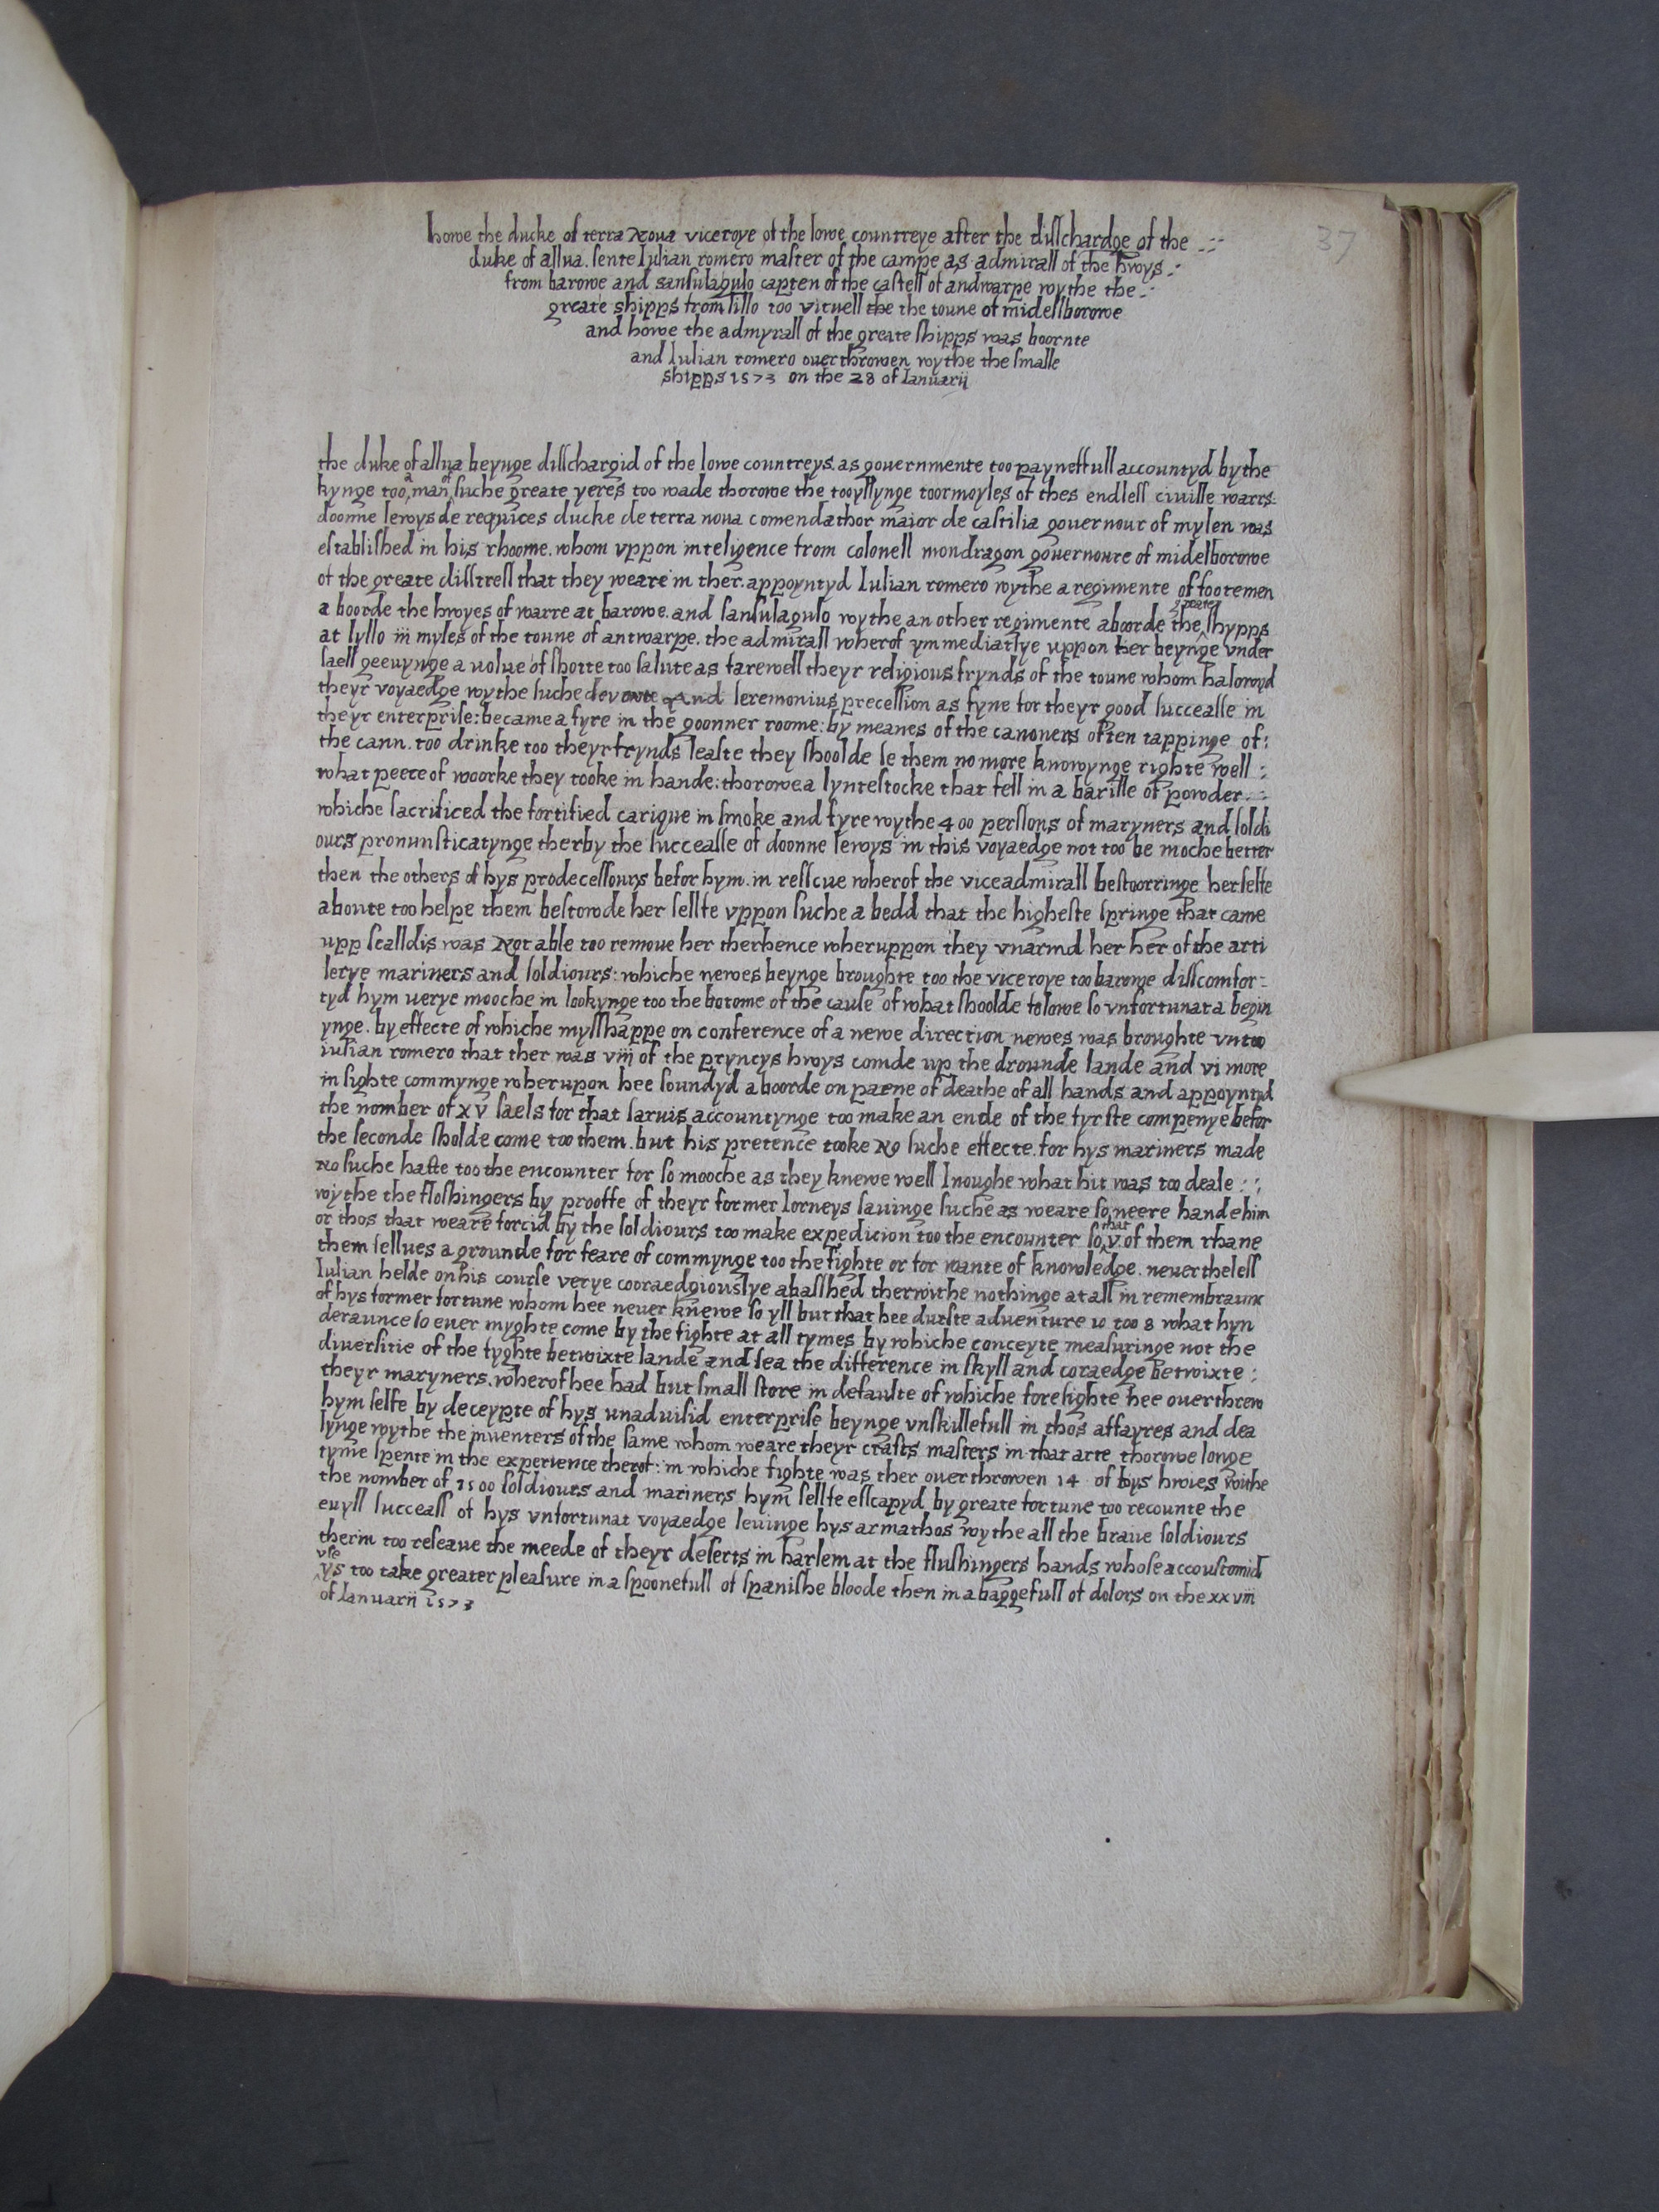 37
howe the ducke of terra Noua viceroye of the lowe countreye after the disschardge of the
duke of allua. sente Iulian romero master of the campe as admirall of the hwoys
from barowe and sansulagulo capten of the castell of andwarpe wythe the
greate shipps from lillo too vituell the the toune of midellborowe
and howe the admyrall of the greate shipps was boornte
and Iulian romero ouerthrowen wythe the smalle
shipps 1573 on the 28 of Ianuarij
the duke of allua beynge disschargid of the lowe countreys. as gouernmente too paynefull accountyd by the
kynge too a man of suche greate yeres too wade thorowe the tooyllynge toormoyles of thes endless ciuille warrs
doonne lewys de requices ducke de terra noua comendathor maior de castilia gouernour of mylen was
established in his rhoome. whom vppon inteligence from colonell mondragon gouernoure of midelborowe
of the greate disstress that they weare in ther. appoyntyd Iulian romero wythe a regimente of footemen
a boorde the hwoyes of warre at barowe. and sansulagulo wythe an other regimente aboorde the greate shypps
at lyllo iij myles of the toune of antwarpe. the admirall wherof ymmediatlye uppon her beynge vnder
saell geeuynge a uolue of shotte too salute as farewell theyr religious frynds of the toune whom halowyd
theyr voyaedge wythe suche devoute And seremonius precession as fyne for theyr good successe in
theyr enterprise: became a fyre in the goonner roome: by meanes of the canoners often tappinge of
the cann. too drinke too theyr frynds leaste they shoolde se them no more knowynge righte well
what peece of woorke they tooke in hande: thorowe a lyntestocke that fell in a barille of powder
whiche sacrificed the fortified carique in smoke and fyre wythe 400 perssons of maryners and soldi
ours pronunsticatynge therby the successe of doonne lewys in this voyaedge not too be moche better
then the others of hys prodecessours befor hym. in resscue wherof the viceadmirall bestoorringe herselfe
aboute too helpe them bestowde her sellfe vppon suche a bedd that the higheste springe that came
upp scalldis was Not able too remoue her therhence wheruppon they vnarmd her her of the arti
lerye mariners and soldiours: whiche newes beynge broughte too the viceroye too barowe disscomfor
tyd hym uerye mooche in lookynge too the botome of the cause of what shoolde folowe so vnfortunat a begin
ynge. by effecte of whiche mysshappe on conference of a newe direction newes was broughte vntoo
iulian romero that ther was viij of the pryncys hwoys comde up the drounde lande and vi more
in sighte commynge wherupon hee soundyd aboorde on paene of deathe of all hands and appoyntyd
the nomber of xv saels for that saruis accountynge too make an ende of the fyrste compenye befor
the seconde sholde come too them. but his pretence tooke No suche effecte. for hys mariners made
No suche haste too the encounter for so mooche as they knewe well Inoughe what hit was too deale
wythe the floshingers by prooffe of theyr former Iorneys sauinge suche as weare so neere hande him
or thos that weare forcid by the soldiours too make expedicion too the encounter so that v of them rhane
them sellues a grounde for feare of commynge too the fighte or for wante of knowledge. neuertheless
Iulian helde on his course verye cooraedgiouslye abasshed therwithe nothinge at all in remembraunc
of hys former fortune whom hee neuer knewe so yll but that hee durste aduenture 10 too 8 what hyn
deraunce so euer myghte come by the fighte at all tymes by whiche conceyte measuringe not the
diuersitie of the fyghte betwixte lande and sea the difference in skyll and coraedge betwixte
theyr maryners. wherof hee had but small store in defaulte of whiche foresighte hee ouerthrew
hym selfe by deceypte of hys unaduisid enterprise beynge vnskillefull in thos affayres and dea
lynge wythe the inuenters of the same whom weare theyr crafts masters in that arte thorowe longe
tyme spente in the experience therof: in whiche fighte was ther ouerthrowen 14 of hys hwoies withe
the nomber of 1500 soldiours and mariners hym sellfe esscapyd by greate fortune too recounte the
euyll success of hys vnfortunat voyaedge leuinge hys armathos wythe all the braue soldiours
therin too reseaue the meede of theyr deserts in harlem at the flushingers hands whose accoustomid
vse ys too take greater pleasure in a spoonefull of spanishe bloode then in a baggefull of dolors on the xxviii
of Ianuarii 1573